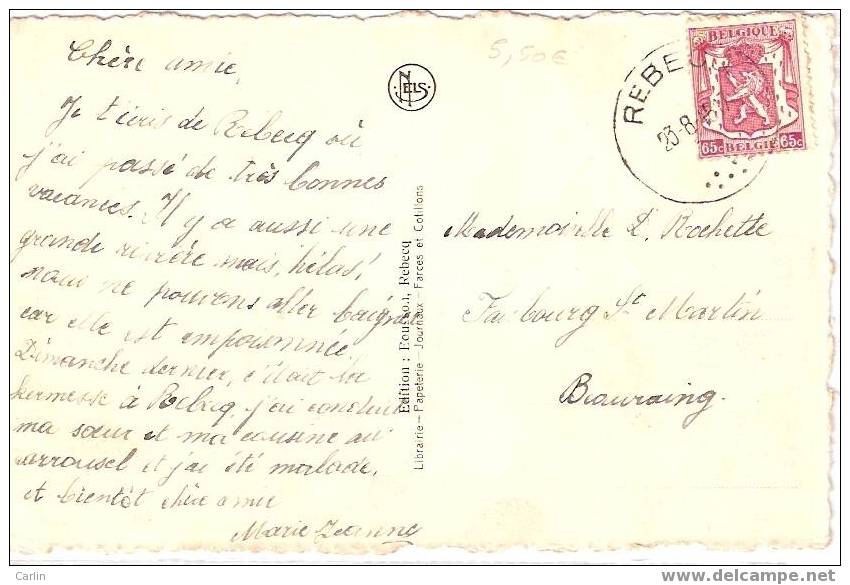 Chère amie,
Je t'écris de Rebecq où
j'ai passé de très bonnes
vacances. Il y a aussi une
grande rivière mais, hélas,
nous ne pouvons aller baigner
car elle est empoisonnée
Dimanche dernier, c'était la
kermesse à Rebecq, j'ai conduit
ma sœur et ma cousine au
carrousel et j'ai été malade.
A bientôt chère amie
Marie Jeanne
5,50€
NELS
Edition : Rebecq
Librairie - Papeterie - Journaux - Farces et Cotillons
REBECQ
23-8
BELGIQUE
65c BELGIE 65c
Mademoiselle D. Rochette
Faubourg St Martin
Beauraing.
© Carlin
http://www.delcampe.net